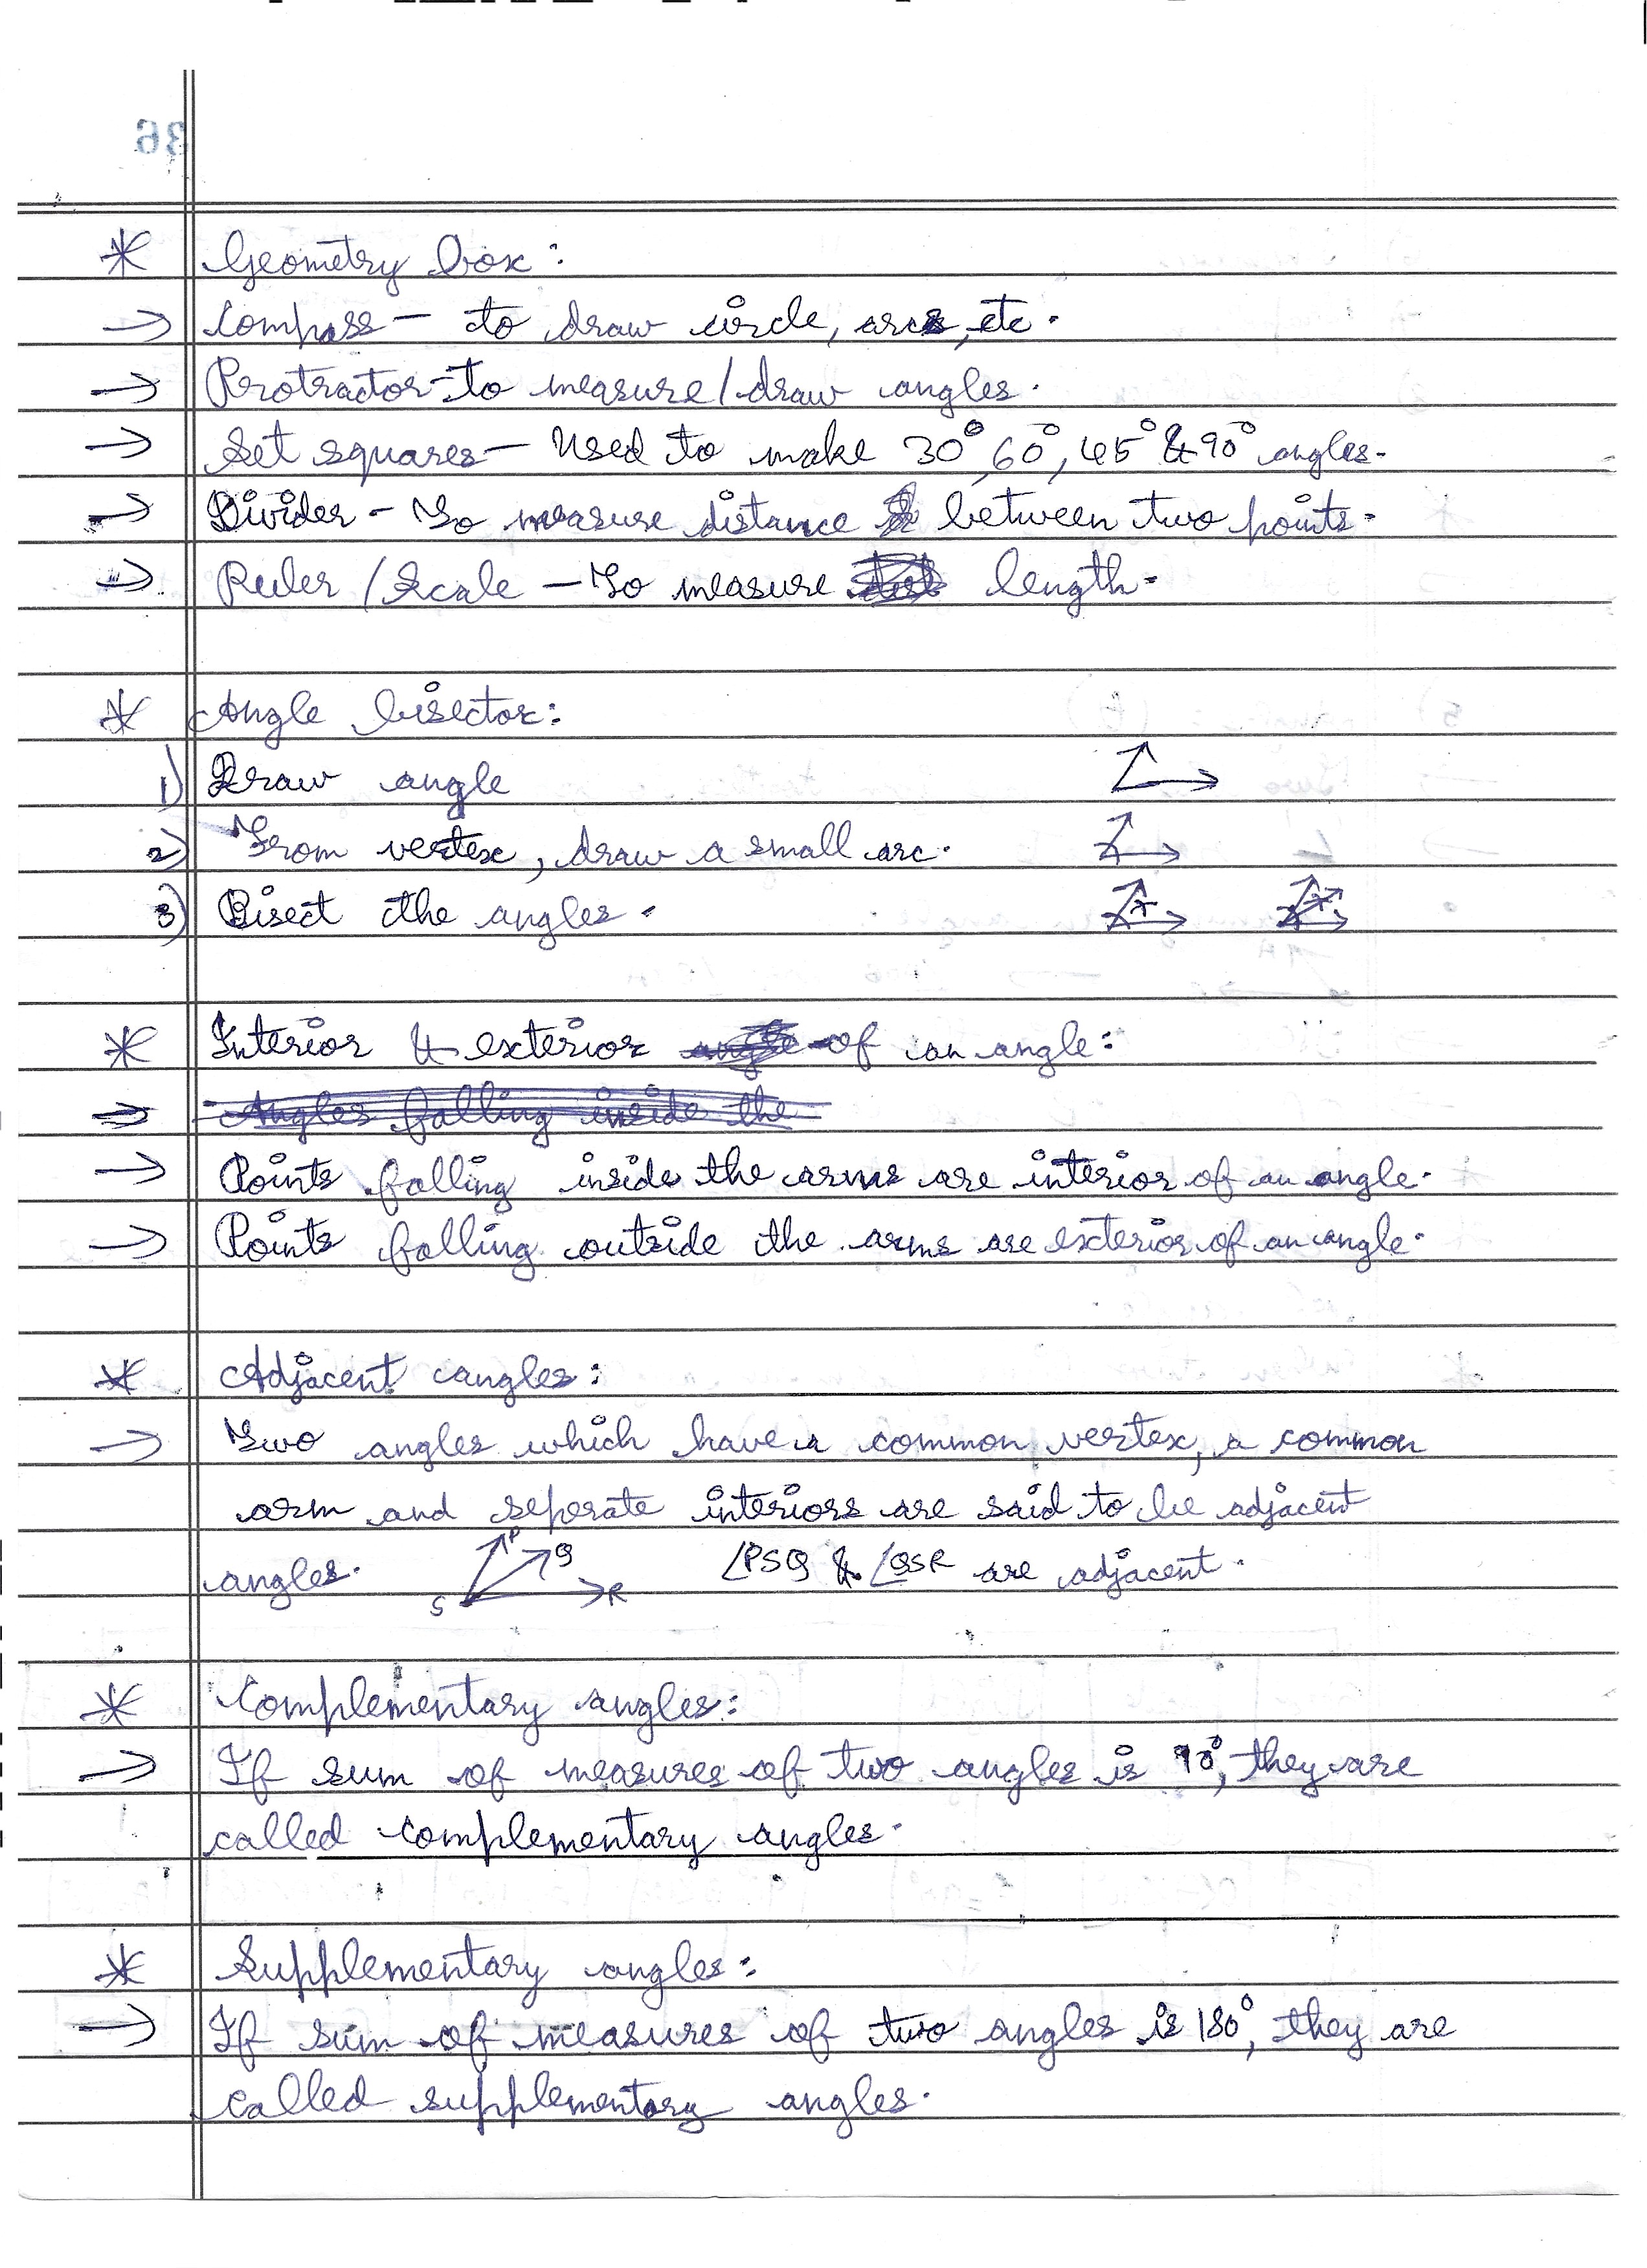 36
* Geometry box:
→ Compass - to draw circle, arcs, etc.
→ Protractor - to measure/draw angles.
→ Set squares - Used to make 30°, 60°, 45° & 90° angles.
→ Divider - To measure distance between two points.
→ Ruler / Scale - To measure length.
* Angle bisector:
1) Draw angle
2) From vertex, draw a small arc.
3) Bisect the angles.
* Interior & exterior angle of an angle:
→ Angles falling inside the
→ Points falling inside the arms are interior of an angle.
→ Points falling outside the arms are exterior of an angle.
* Adjacent angles:
→ Two angles which have a common vertex, a common
arm and seperate interiors are said to be adjacent
angles. P Q S R ∠PSQ & ∠QSR are adjacent.
* Complementary angles:
→ If sum of measures of two angles is 90°, they are
called complementary angles.
* Supplementary angles:
→ If sum of measures of two angles is 180°, they are
called supplementary angles.